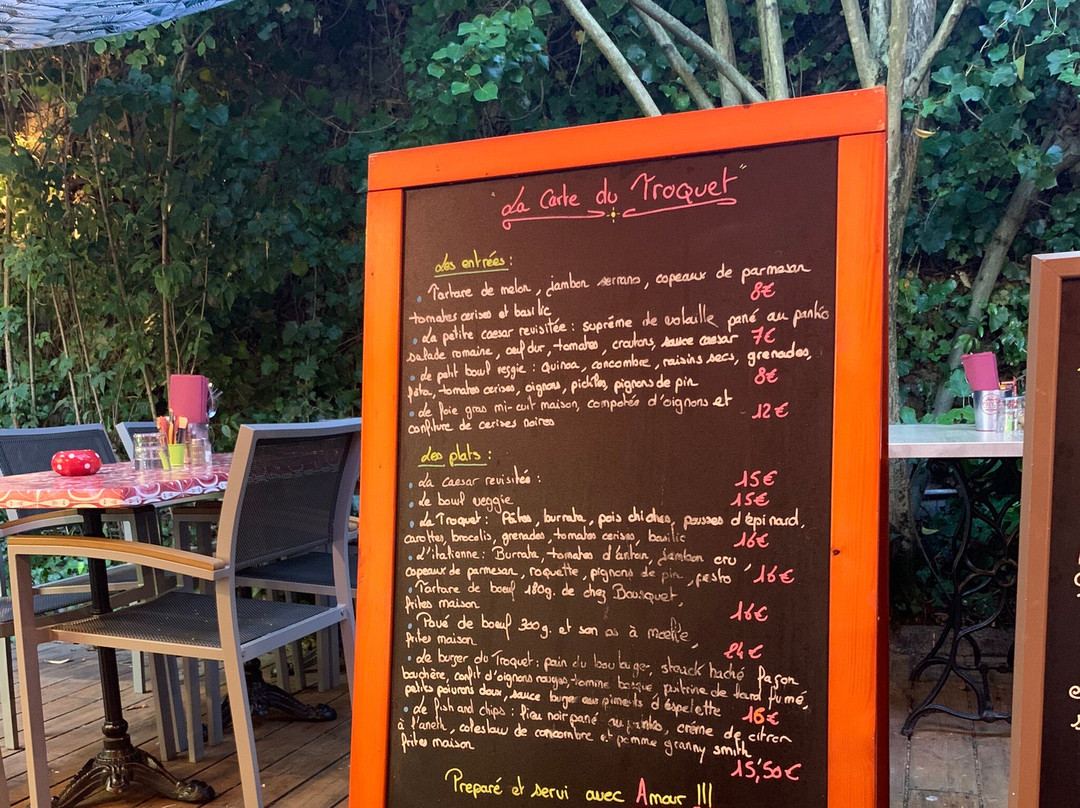 "La Carte du Troquet"
Les entrées :
• Tartare de melon, jambon serrano, copeaux de parmesan
tomates cerises et basilic 8€
• La petite caesar revisitée : suprême de volaille pané au panko
salade romaine, oeuf dur, tomates, croutons, sauce caesar 7€
• Le petit bowl veggie : quinoa, concombre, raisins secs, grenades,
féta, tomates cerises, oignons, pickles, pignons de pin 8€
• Le foie gras mi-cuit maison, compotée d'oignons et
confiture de cerises noires 12€
Les plats :
• La caesar revisitée : 15€
• Le bowl veggie 15€
• Le Troquet : Pâtes, burrata, pois chiches, pousses d'épinard,
carottes, brocolis, grenades, tomates cerises, basilic 16€
• L'italienne : Burrata, tomates d'antan, jambon cru,
copeaux de parmesan, roquette, pignons de pin, pesto 16€
• Tartare de boeuf 180g. de chez Bousquet,
frites maison 16€
• Pavé de boeuf 300g. et son os à moelle,
frites maison 24€
• Le burger du Troquet : pain du burger, steack haché façon
bouchère, confit d'oignons rouges, tomme basque, poitrine de lard fumé,
petits poivrons doux, sauce burger aux piments d'éspelette 16€
• Le fish and chips : lieu noir pané au panko, crème de citron
à l'aneth, coleslaw de concombre et pomme granny smith
frites maison 15,50€
Preparé et servi avec Amour !!!